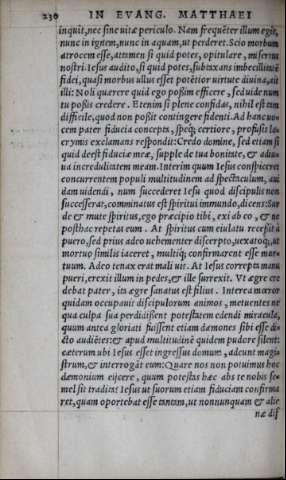 236 IN EVANG. MATTHAEI
inquit, nec sine uitæ periculo. Nam frequẽter illum egit,
nunc in ignem, nunc in aquam, ut perderet. Scio morbum
atrocem esse, attamen si quid potes, opitulare, miserius
nostri. Iesus audito, si quid potes, subtaxans imbecillitatẽ
fidei, quasi morbus ullus esset potẽtior uirtute diuina, ait
illi: Noli quærere quid ego possim efficere, sed uide num
tu possis credere. Etenim si plene confidas, nihil est tam
difficile, quod non possit contingere fidenti. Ad hanc uo=
cem pater fiducia concepta, spéq; certiore, profusis la=
crymis exclamans respondit: Credo domine, sed etiam si
quid deest fiduciæ meæ, supple de tua bonitate, & adiu=
ua incredulitatem meam. Interim quum Iesus conspiceret
concurrentem populi multitudinem ad spectaculum, aui
dam uidendi, num succederet Iesu quod discipulis non
successerat, comminatus est spiritui immundo, dicens: Sur
de & mute spiritus, ego præcipio tibi, exi ab eo, & ne
posthac repetas eum. At spiritus cum eiulatu recessit à
puero, sed prius adeo uehementer discerpto, uexatoq;, ut
mortuo similis iaceret, multiq; confirmarent esse mor=
tuum. Adeo tenax erat mali uis. At Iesus correpta manu
pueri, erexit illum in pedes, & ille surrexit. Vt ægre cre
debat pater, ita ægre sanatus est filius. Interea mœror
quidam occupauit discipulorum animos, metuentes ne
qua culpa sua perdidissent potestatem edendi miracula,
quum antea gloriati fuissent etiam dæmones sibi esse di=
cto audiẽtes: & apud multitudinẽ quidem pudore silent:
cæterum ubi Iesus esset ingressus domum, adeunt magi=
strum, & interrogãt eum: Quare nos non potuimus hoc
dæmonium eijcere, quum potestas hæc abs te nobis se=
mel sit tradita? Iesus ut suorum etiam fiduciam confirma
ret, quam oportebat esse tantam, ut nonnunquam & alie
næ dif